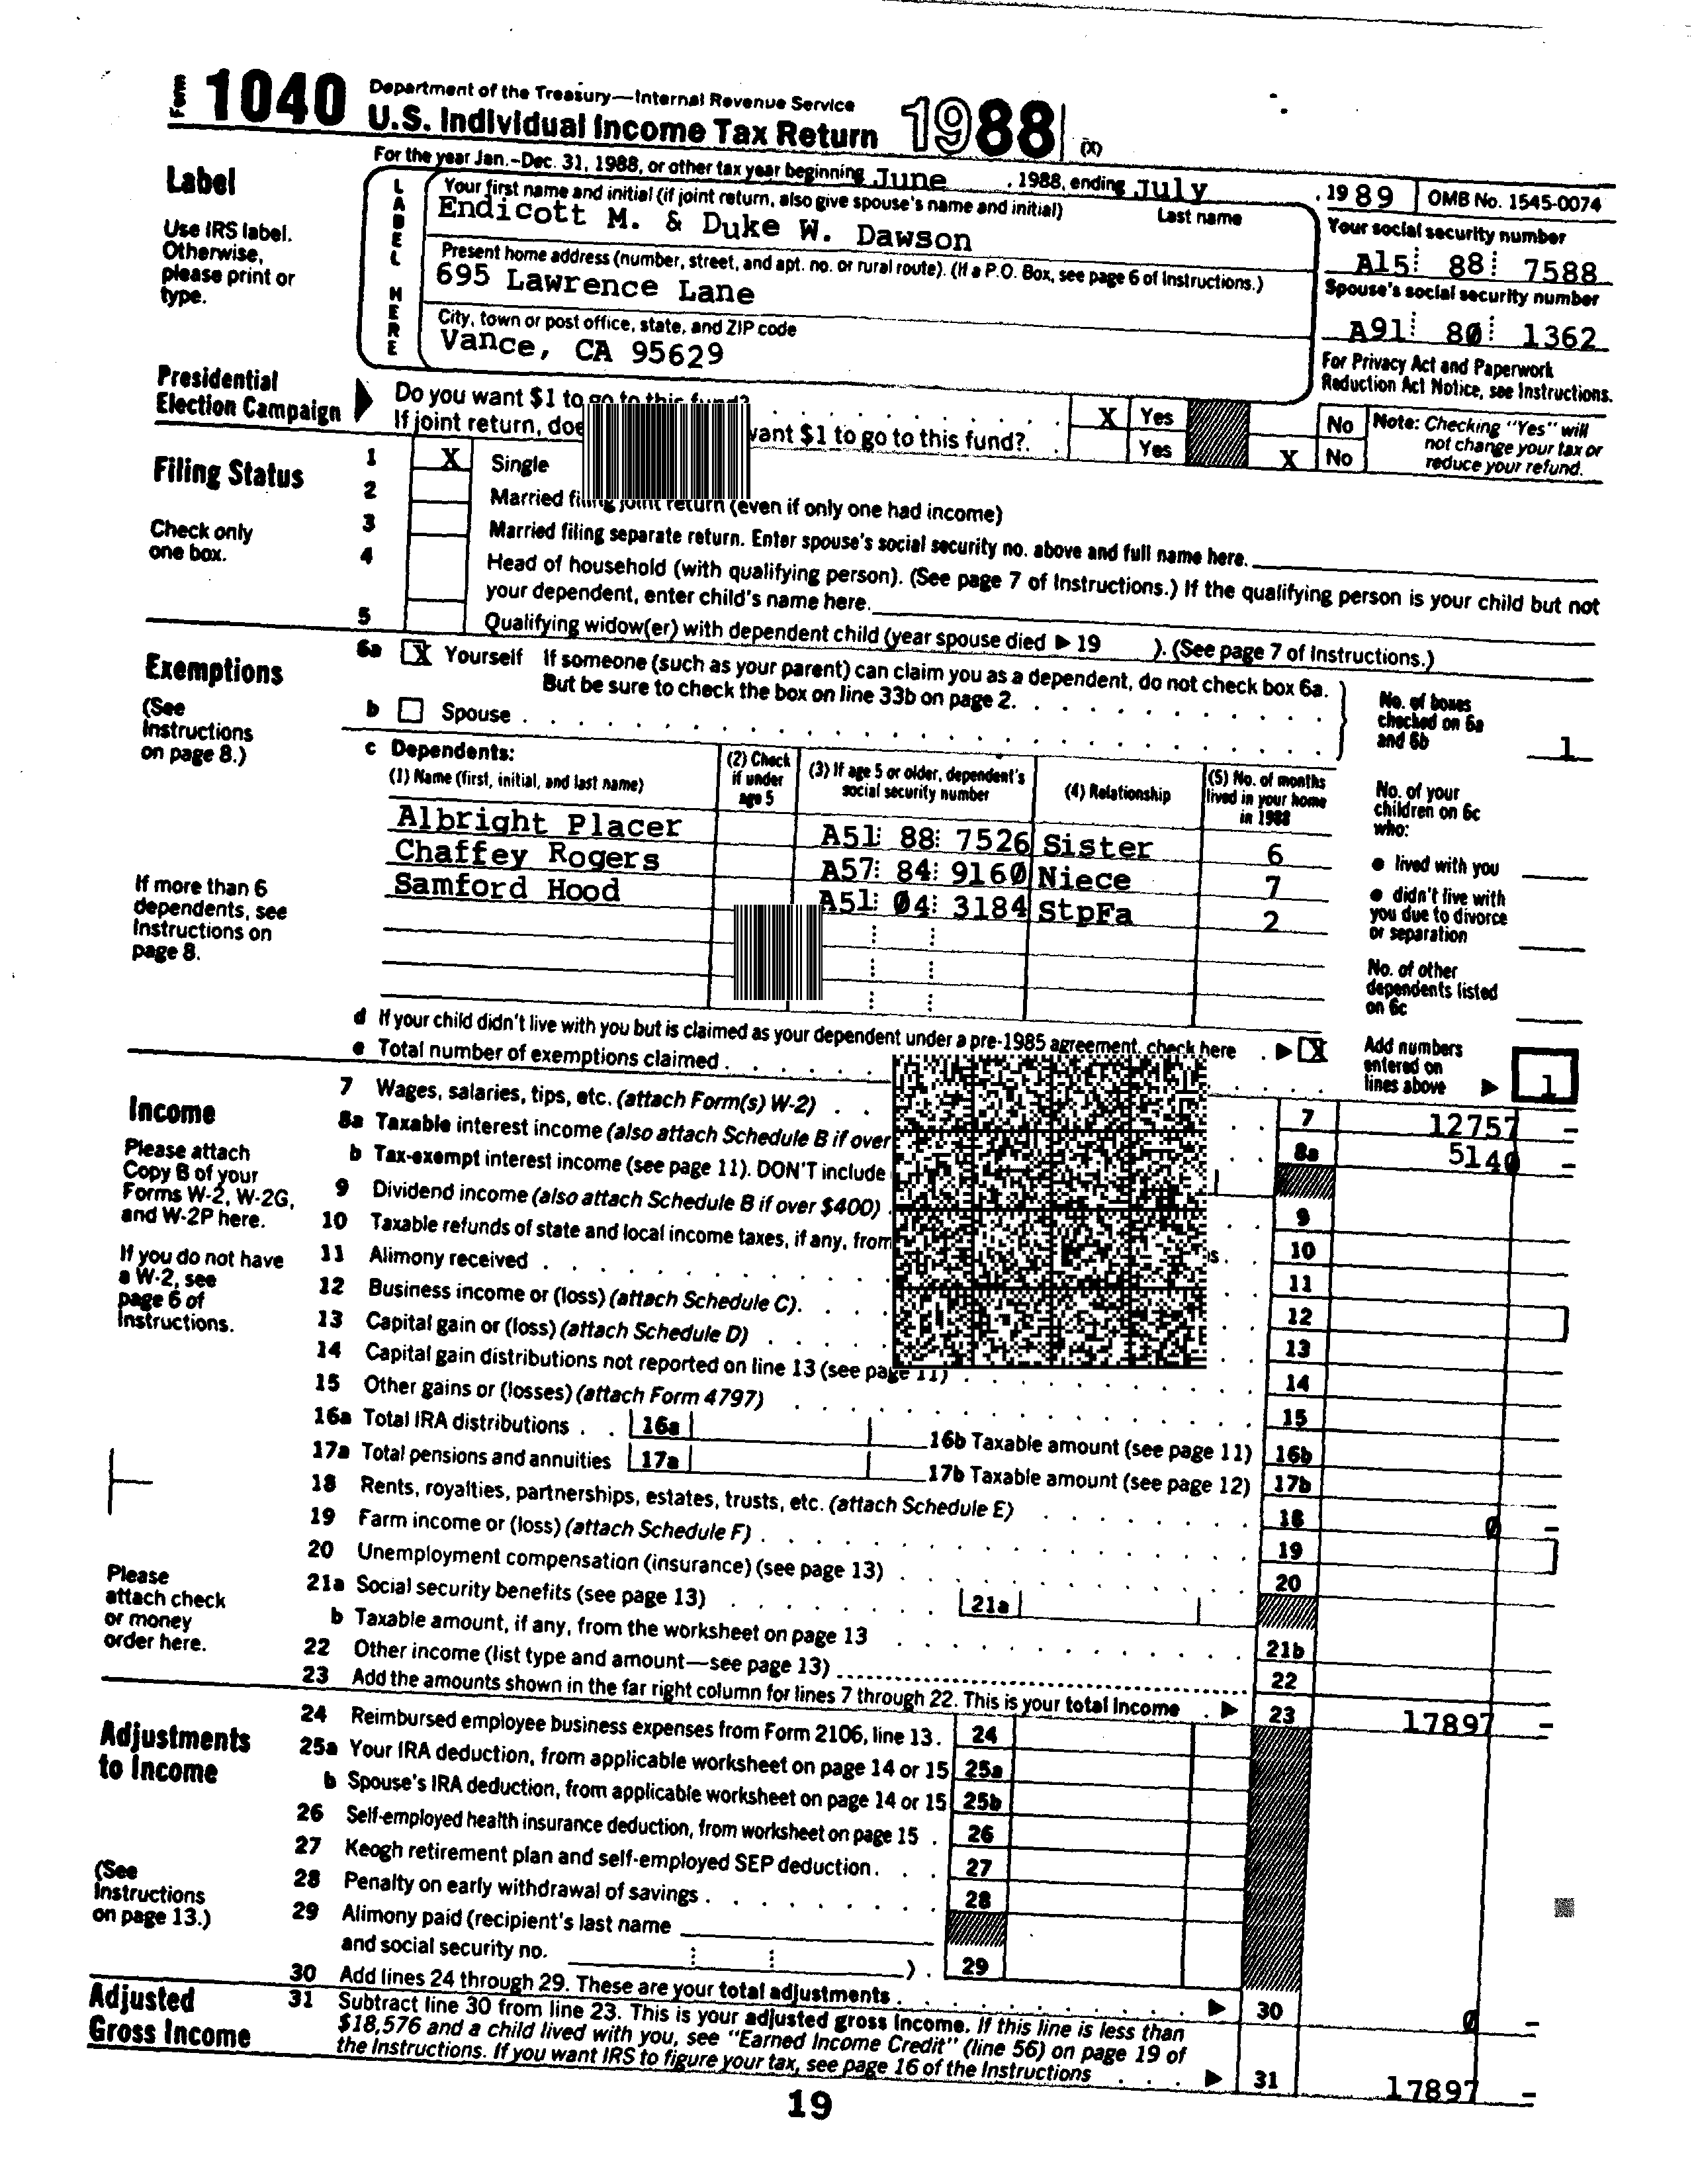 Form 1040 Department of the Treasury—Internal Revenue Service
U.S. Individual Income Tax Return 1988 (X)
For the year Jan.-Dec. 31, 1988, or other tax year beginning June , 1988, ending July , 1989 OMB No. 1545-0074
Label
Use IRS label. Otherwise, please print or type.
LABEL HERE
Your first name and initial (if joint return, also give spouse's name and initial) Last name
Endicott M. & Duke W. Dawson
Your social security number
A15 88 7588
Present home address (number, street, and apt. no. or rural route). (If a P.O. Box, see page 6 of Instructions.)
695 Lawrence Lane
Spouse's social security number
A91 80 1362
City, town or post office, state, and ZIP code
Vance, CA 95629
For Privacy Act and Paperwork Reduction Act Notice, see Instructions.
Presidential Election Campaign
Do you want $1 to go to this fund? X Yes No
If joint return, doe want $1 to go to this fund? Yes X No
Note: Checking "Yes" will not change your tax or reduce your refund.
Filing Status
Check only one box.
1 X Single
2 Married filing joint return (even if only one had income)
3 Married filing separate return. Enter spouse's social security no. above and full name here.
4 Head of household (with qualifying person). (See page 7 of Instructions.) If the qualifying person is your child but not
your dependent, enter child's name here.
5 Qualifying widow(er) with dependent child (year spouse died ▶ 19 ). (See page 7 of Instructions.)
Exemptions
(See Instructions on page 8.)
6a X Yourself If someone (such as your parent) can claim you as a dependent, do not check box 6a.
But be sure to check the box on line 33b on page 2.
b Spouse
No. of boxes checked on 6a and 6b 1
c Dependents:
(1) Name (first, initial, and last name) (2) Check if under age 5 (3) If age 5 or older, dependent's social security number (4) Relationship (5) No. of months lived in your home in 1988
Albright Placer A51 88 7526 Sister 6
Chaffey Rogers A57 84 9160 Niece 7
Samford Hood A51 04 3184 StpFa 2
If more than 6 dependents, see Instructions on page 8.
No. of your children on 6c who:
● lived with you
● didn't live with you due to divorce or separation
No. of other dependents listed on 6c
d If your child didn't live with you but is claimed as your dependent under a pre-1985 agreement, check here ▶ X
e Total number of exemptions claimed
Add numbers entered on lines above ▶ 1
Income
Please attach Copy B of your Forms W-2, W-2G, and W-2P here.
If you do not have a W-2, see page 6 of Instructions.
7 Wages, salaries, tips, etc. (attach Form(s) W-2) 7 12757 –
8a Taxable interest income (also attach Schedule B if over 8a 5140 –
b Tax-exempt interest income (see page 11). DON'T include
9 Dividend income (also attach Schedule B if over $400) 9
10 Taxable refunds of state and local income taxes, if any, from 10
11 Alimony received 11
12 Business income or (loss) (attach Schedule C). 12
13 Capital gain or (loss) (attach Schedule D) 13
14 Capital gain distributions not reported on line 13 (see page 11) 14
15 Other gains or (losses) (attach Form 4797) 15
16a Total IRA distributions 16a 16b Taxable amount (see page 11) 16b
17a Total pensions and annuities 17a 17b Taxable amount (see page 12) 17b
18 Rents, royalties, partnerships, estates, trusts, etc. (attach Schedule E) 18 0 –
19 Farm income or (loss) (attach Schedule F) 19
20 Unemployment compensation (insurance) (see page 13) 20
21a Social security benefits (see page 13) 21a
b Taxable amount, if any, from the worksheet on page 13 21b
22 Other income (list type and amount—see page 13) 22
23 Add the amounts shown in the far right column for lines 7 through 22. This is your total income ▶ 23 17897 –
Please attach check or money order here.
Adjustments to Income
(See Instructions on page 13.)
24 Reimbursed employee business expenses from Form 2106, line 13. 24
25a Your IRA deduction, from applicable worksheet on page 14 or 15 25a
b Spouse's IRA deduction, from applicable worksheet on page 14 or 15 25b
26 Self-employed health insurance deduction, from worksheet on page 15 26
27 Keogh retirement plan and self-employed SEP deduction 27
28 Penalty on early withdrawal of savings 28
29 Alimony paid (recipient's last name
and social security no. ) 29
30 Add lines 24 through 29. These are your total adjustments ▶ 30 0 –
Adjusted Gross Income
31 Subtract line 30 from line 23. This is your adjusted gross income. If this line is less than
$18,576 and a child lived with you, see "Earned Income Credit" (line 56) on page 19 of
the Instructions. If you want IRS to figure your tax, see page 16 of the Instructions ▶ 31 17897 –
19